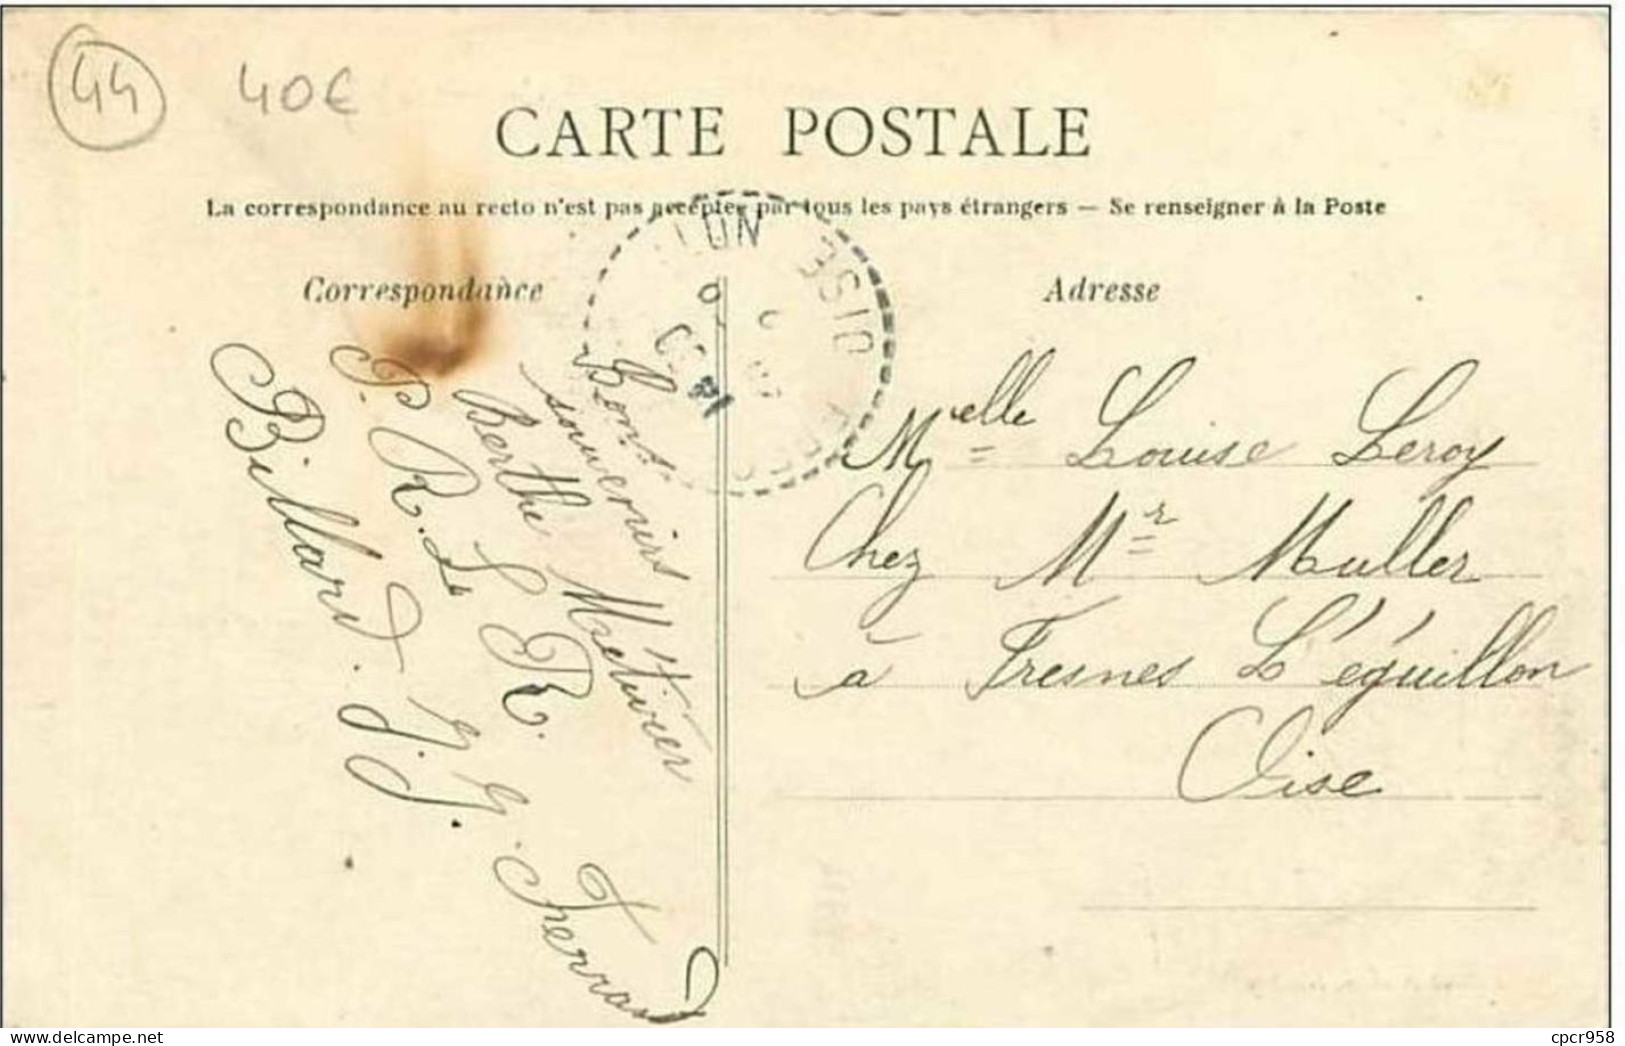 44
40€
CARTE POSTALE
La correspondance au recto n'est pas acceptée par tous les pays étrangers — Se renseigner à la Poste
Correspondance
Adresse
OISE
Bons
souvenirs
Berthe Métivier
P. R. L R.
Billard. J. J.
Ferrand
Melle Louise Leroy
Chez Mr Muller
à Fresnes L'éguillon
Oise
delcampe.net
cpcr958